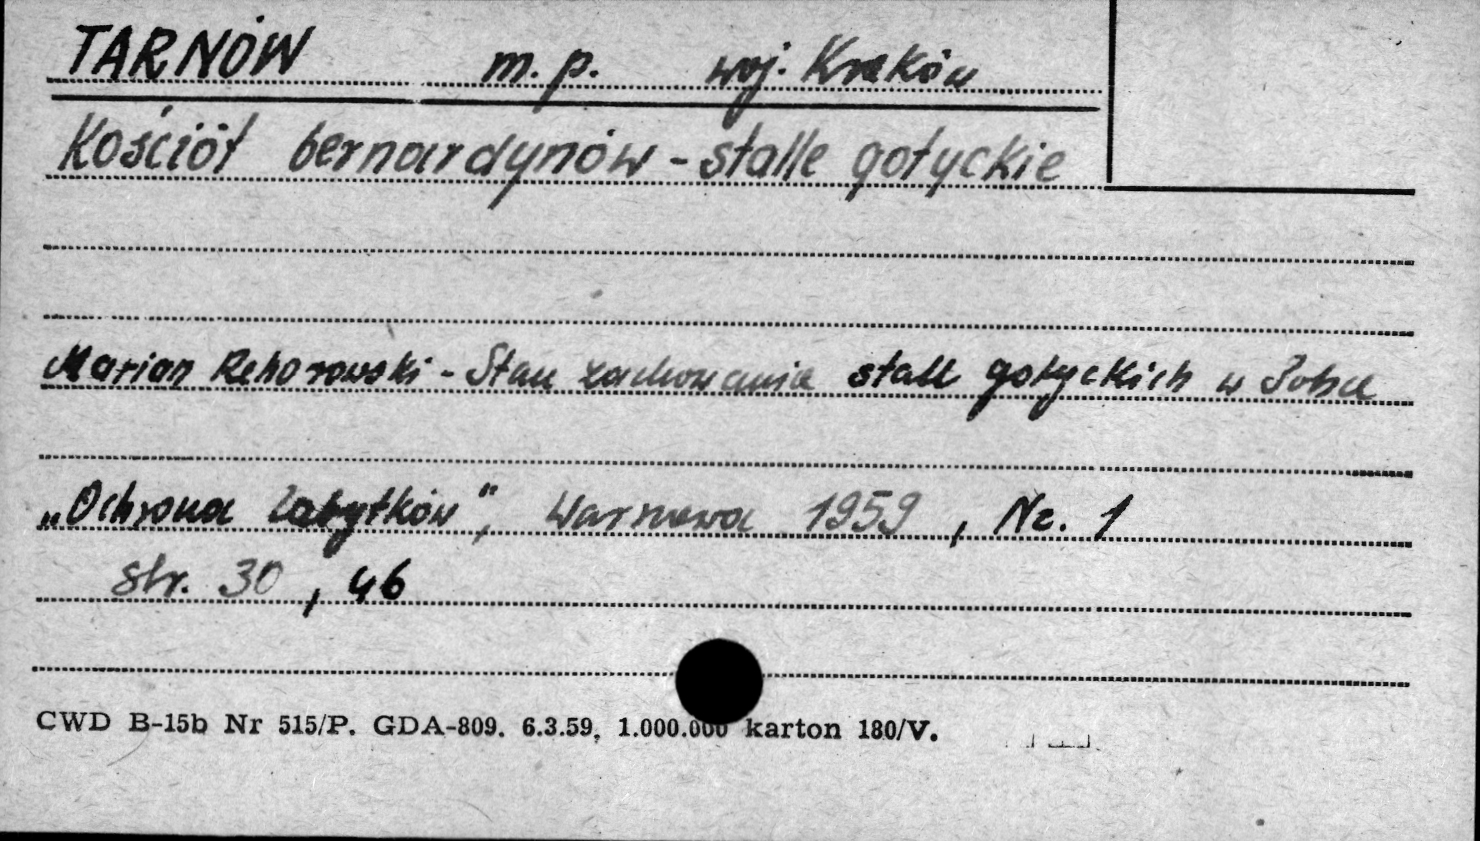 TARNÓW m. p. woj. Kraków
Kościół bernardynów - stalle gotyckie
Marian Rehorowski - Stan zachowania stall gotyckich w Polsce
„Ochrona Zabytków", Warszawa 1959, Nr. 1
str. 30, 46
CWD B-15b Nr 515/P. GDA-809. 6.3.59, 1.000.000 karton 180/V.